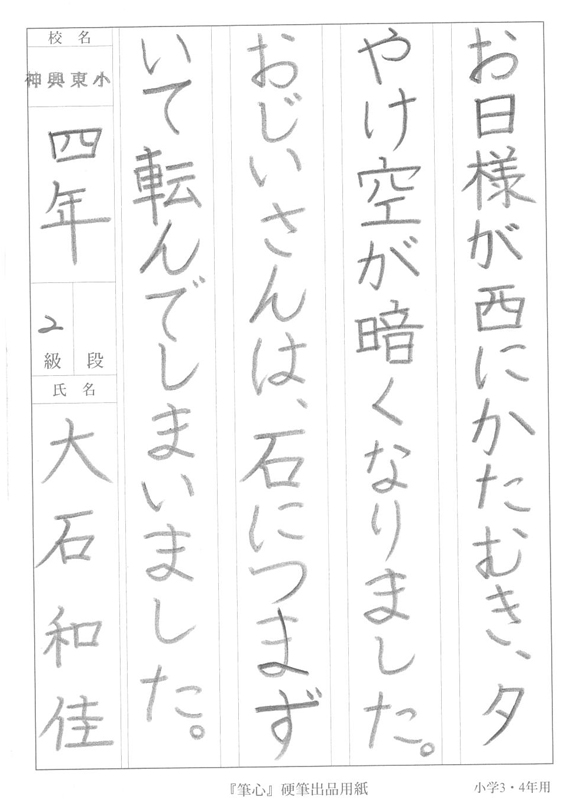 お日様が西にかたむき、夕
やけ空が暗くなりました。
おじいさんは、石につまず
いて転んでしまいました。
校名
神興東小
四年
2級
段
氏名
大石和佳
『筆心』硬筆出品用紙
小学3・4年用